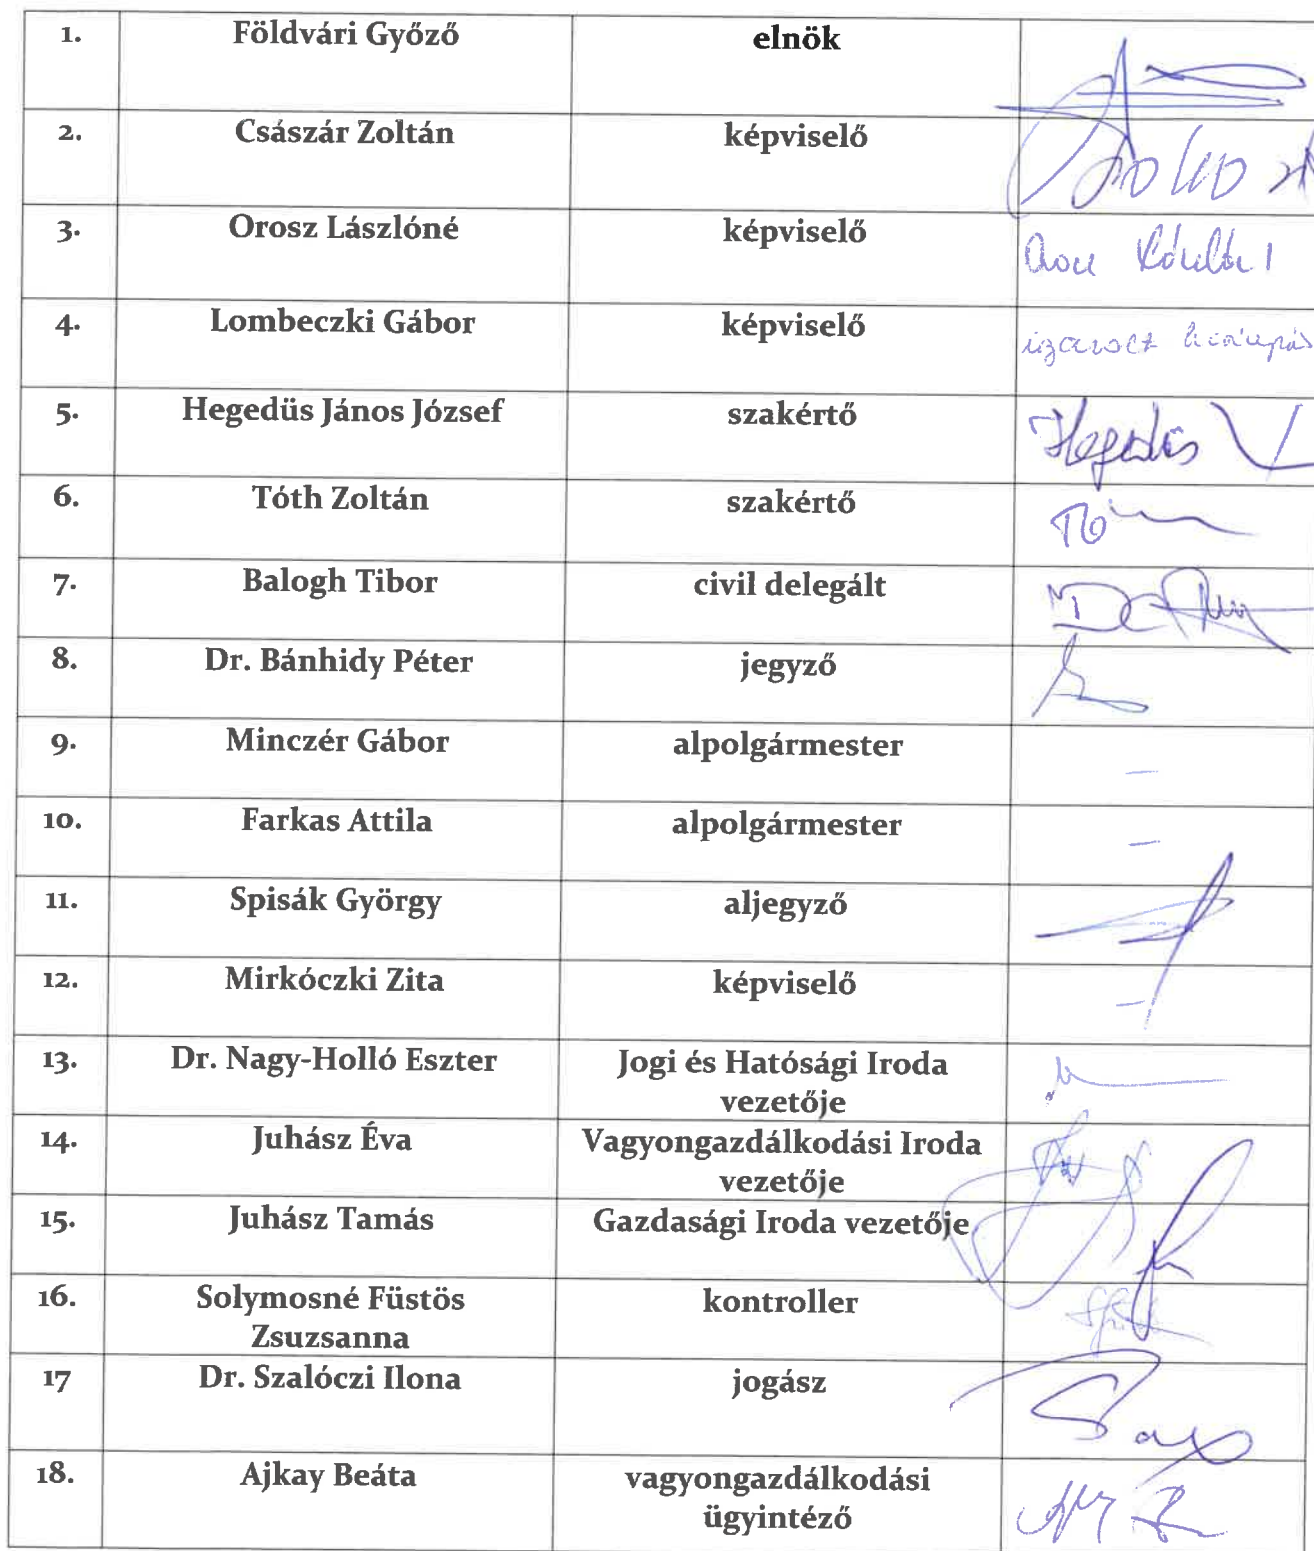 1. Földvári Győző elnök
2. Császár Zoltán képviselő
3. Orosz Lászlóné képviselő
4. Lombeczki Gábor képviselő igazolt
5. Hegedüs János József szakértő Hegedüs
6. Tóth Zoltán szakértő
7. Balogh Tibor civil delegált
8. Dr. Bánhidy Péter jegyző
9. Minczér Gábor alpolgármester –
10. Farkas Attila alpolgármester –
11. Spisák György aljegyző
12. Mirkóczki Zita képviselő –
13. Dr. Nagy-Holló Eszter Jogi és Hatósági Iroda
vezetője
14. Juhász Éva Vagyongazdálkodási Iroda
vezetője
15. Juhász Tamás Gazdasági Iroda vezetője
16. Solymosné Füstös kontroller
Zsuzsanna
17 Dr. Szalóczi Ilona jogász
18. Ajkay Beáta vagyongazdálkodási
ügyintéző